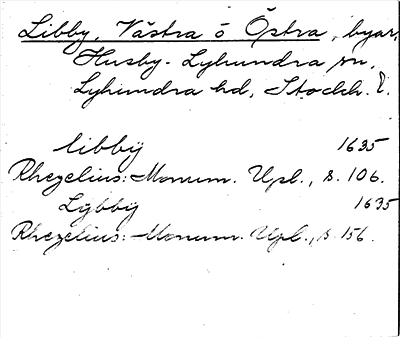 Libby, Västra o Östra, byar,
Husby-Lyhundra sn,
Lyhundra hd, Stockh. l.
libbÿ 1635
Rhezelius: Monum. Upl., s. 106.
Lÿbbÿ 1635
Rhezelius: Monum. Upl., s. 156.